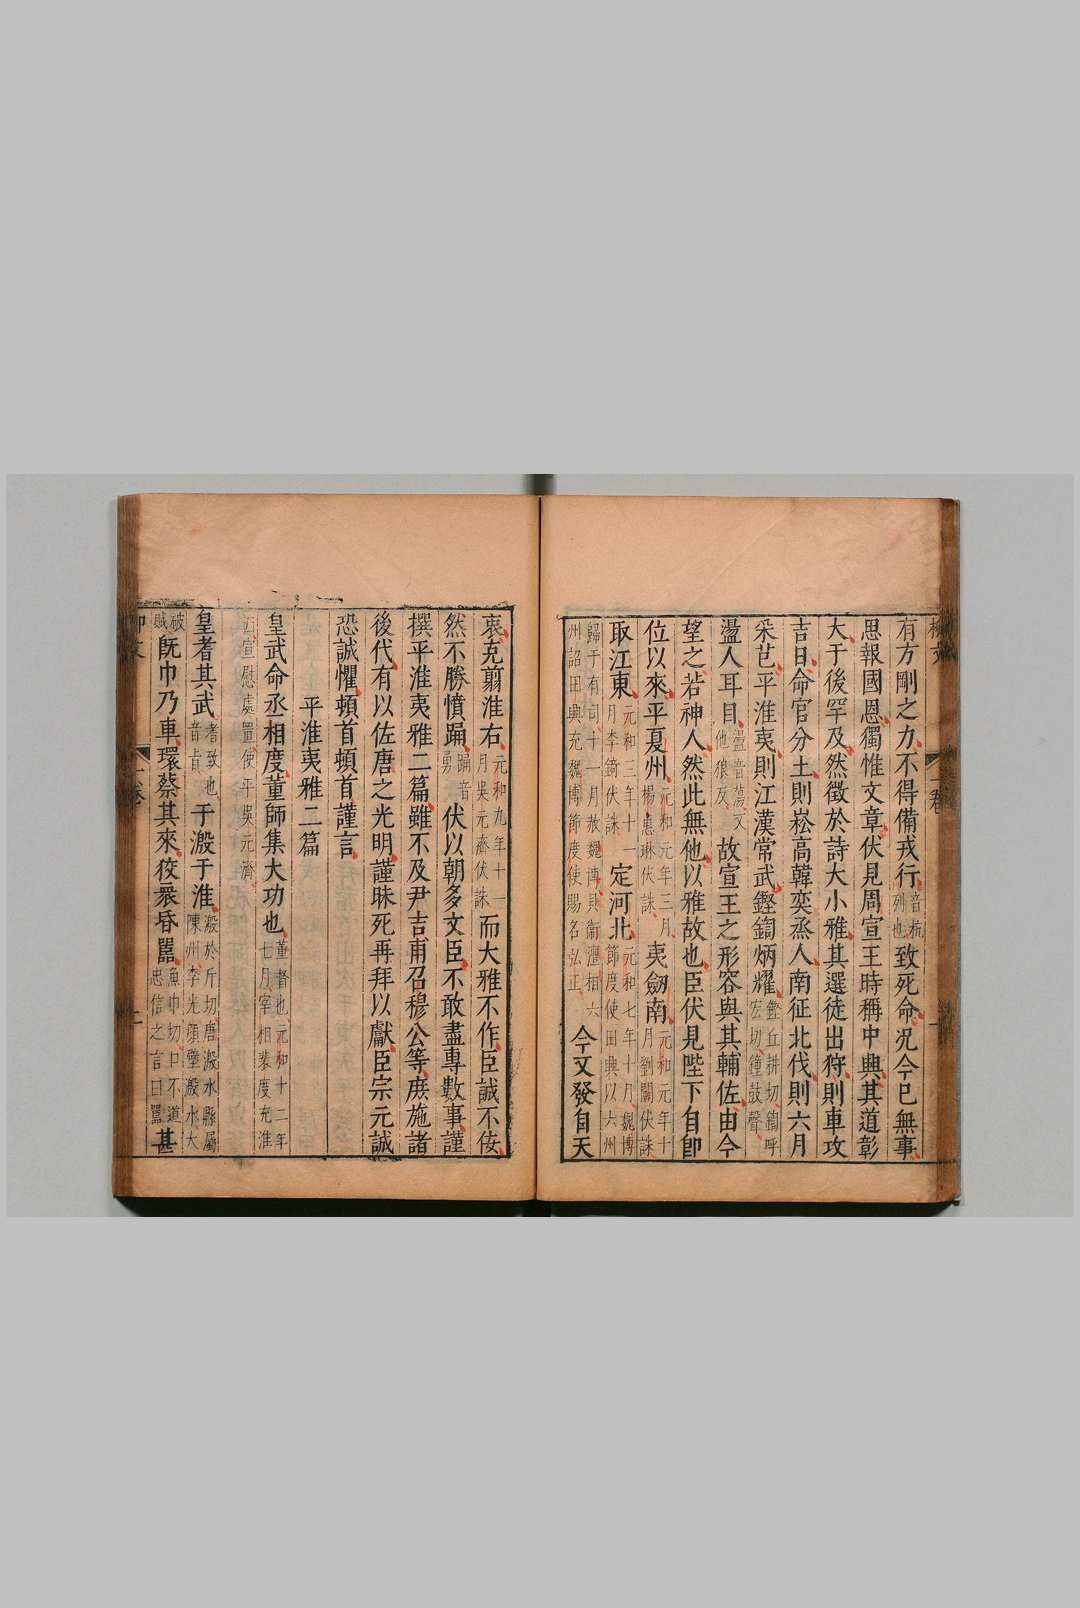 有方剛之力不得備戎行音杭列也致死命況今已無事
思報國恩獨惟文章伏見周宣王時稱中興其道彰
大于後罕及然徵於詩大小雅其選徒出狩則車攻
吉日命官分土則崧高韓奕烝人南征北伐則六月
采芑平淮夷則江漢常武鏗鍧炳耀鏗丘耕切鍧呼宏切鐘鼓聲
盪人耳目盪音蕩又他狼反故宣王之形容與其輔佐由今
望之若神人然此無他以雅故也臣伏見陛下自即
位以來平夏州元和元年三月楊惠琳伏誅夷劒南元和元年十月劉闢伏誅
取江東元和三年十一月李錡伏誅定河北元和七年十月魏博節度使田興以六州
歸于有司十一月赦魏博貝衛澶相六州詔田興充魏博節度使賜名弘正今又發自天
衷克翦淮右元和九年十一月吳元濟伏誅而大雅不作臣誠不佞
然不勝憤踊踊音勇伏以朝多文臣不敢盡專數事謹
撰平淮夷雅二篇雖不及尹吉甫召穆公等庶施諸
後代有以佐唐之光明謹昧死再拜以獻臣宗元誠
恐誠懼頓首頓首謹言
平淮夷雅二篇
皇武命丞相度董師集大功也董者也元和十二年七月宰相裴度充淮
西宣慰處置使平吳元濟
皇耆其武耆致也音旨于溵于淮溵於斤切唐溵水縣屬陳州李光顏壁溵水大
破賊既巾乃車環蔡其來狡衆昏嚚魚巾切口不道忠信之言曰嚚甚